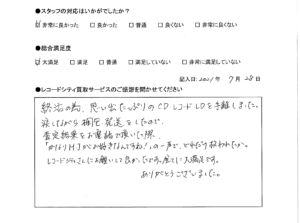 ●スタッフの対応はいかがでしたか？
☑非常に良かった □良かった □普通 □良くない □非常に良くない
●総合満足度
☑大満足 □満足 □普通 □満足していない □非常に満足していない
記入日: 2021年 7月 28日
●レコードシティ買取サービスのご感想を聞かせてください
終活の為、思い出たっぷりのCDレコードLDを手離しました。
涙しながら梱包発送をしたので、
査定結果をお電話で頂いた際、
「かなりH.Jがお好きなんですね！」の一声で、どれだけ救われたか。
レコードシティさんにお願いして良かったです。全てに大満足です。
ありがとうございました。